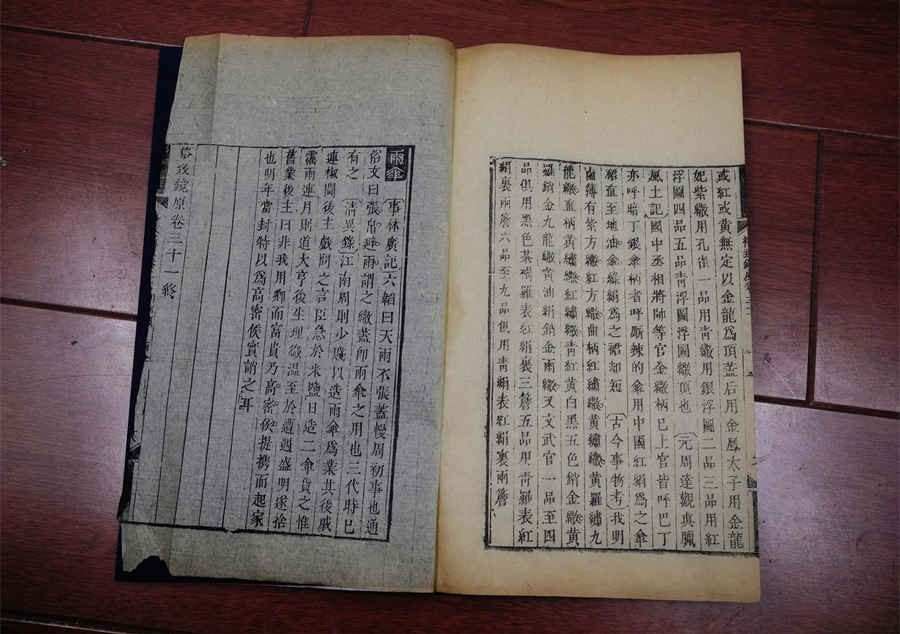 或紅或黃無定以金龍爲頂蓋后用金鳳太子用金龍
妃紫繖用孔雀一品用靑繖用銀浮圖二品三品用紅
浮圖四品五品靑浮圖浮圖繖頂也元周達觀眞臘
風土記國中丞相將帥等官金繖柄巳上官皆呼巴丁
亦呼暗丁銀傘柄者呼厮辣的傘用中國紅絹爲之傘
裙直至地油傘綠絹爲之裙却短古今事物考我明
鹵薄有紫方繖紅方繖曲柄紅繡繖黃繡繖黃羅繡九
龍繖直柄黃繡繖紅繡繖靑紅黃白黑五色銷金繖黃
羅銷金九龍繖黃油絹銷金雨繖又文武官一品至四
品俱用黑色茶褐羅表紅絹裏三簷五品用靑羅表紅
絹裏兩簷六品至九品俱用靑絹表紅絹裏兩簷
雨傘事林廣記六韜曰天雨不張蓋幔周初事也通
俗文曰張帛避雨謂之繖蓋卽雨傘之用也三代時已
有之淸異錄江南周則少賤以造雨傘爲業其後戚
連椒閫後主戲問之言臣急於米鹽日造二傘貨之惟
霪雨連月則道大亨後生理微溫至於遭遇盛明遂捨
舊業後主曰非我用卿而富貴乃高密侯提携而起家
也明年當封特以爲高密侯實誚之耳
格致鏡原卷三十一終